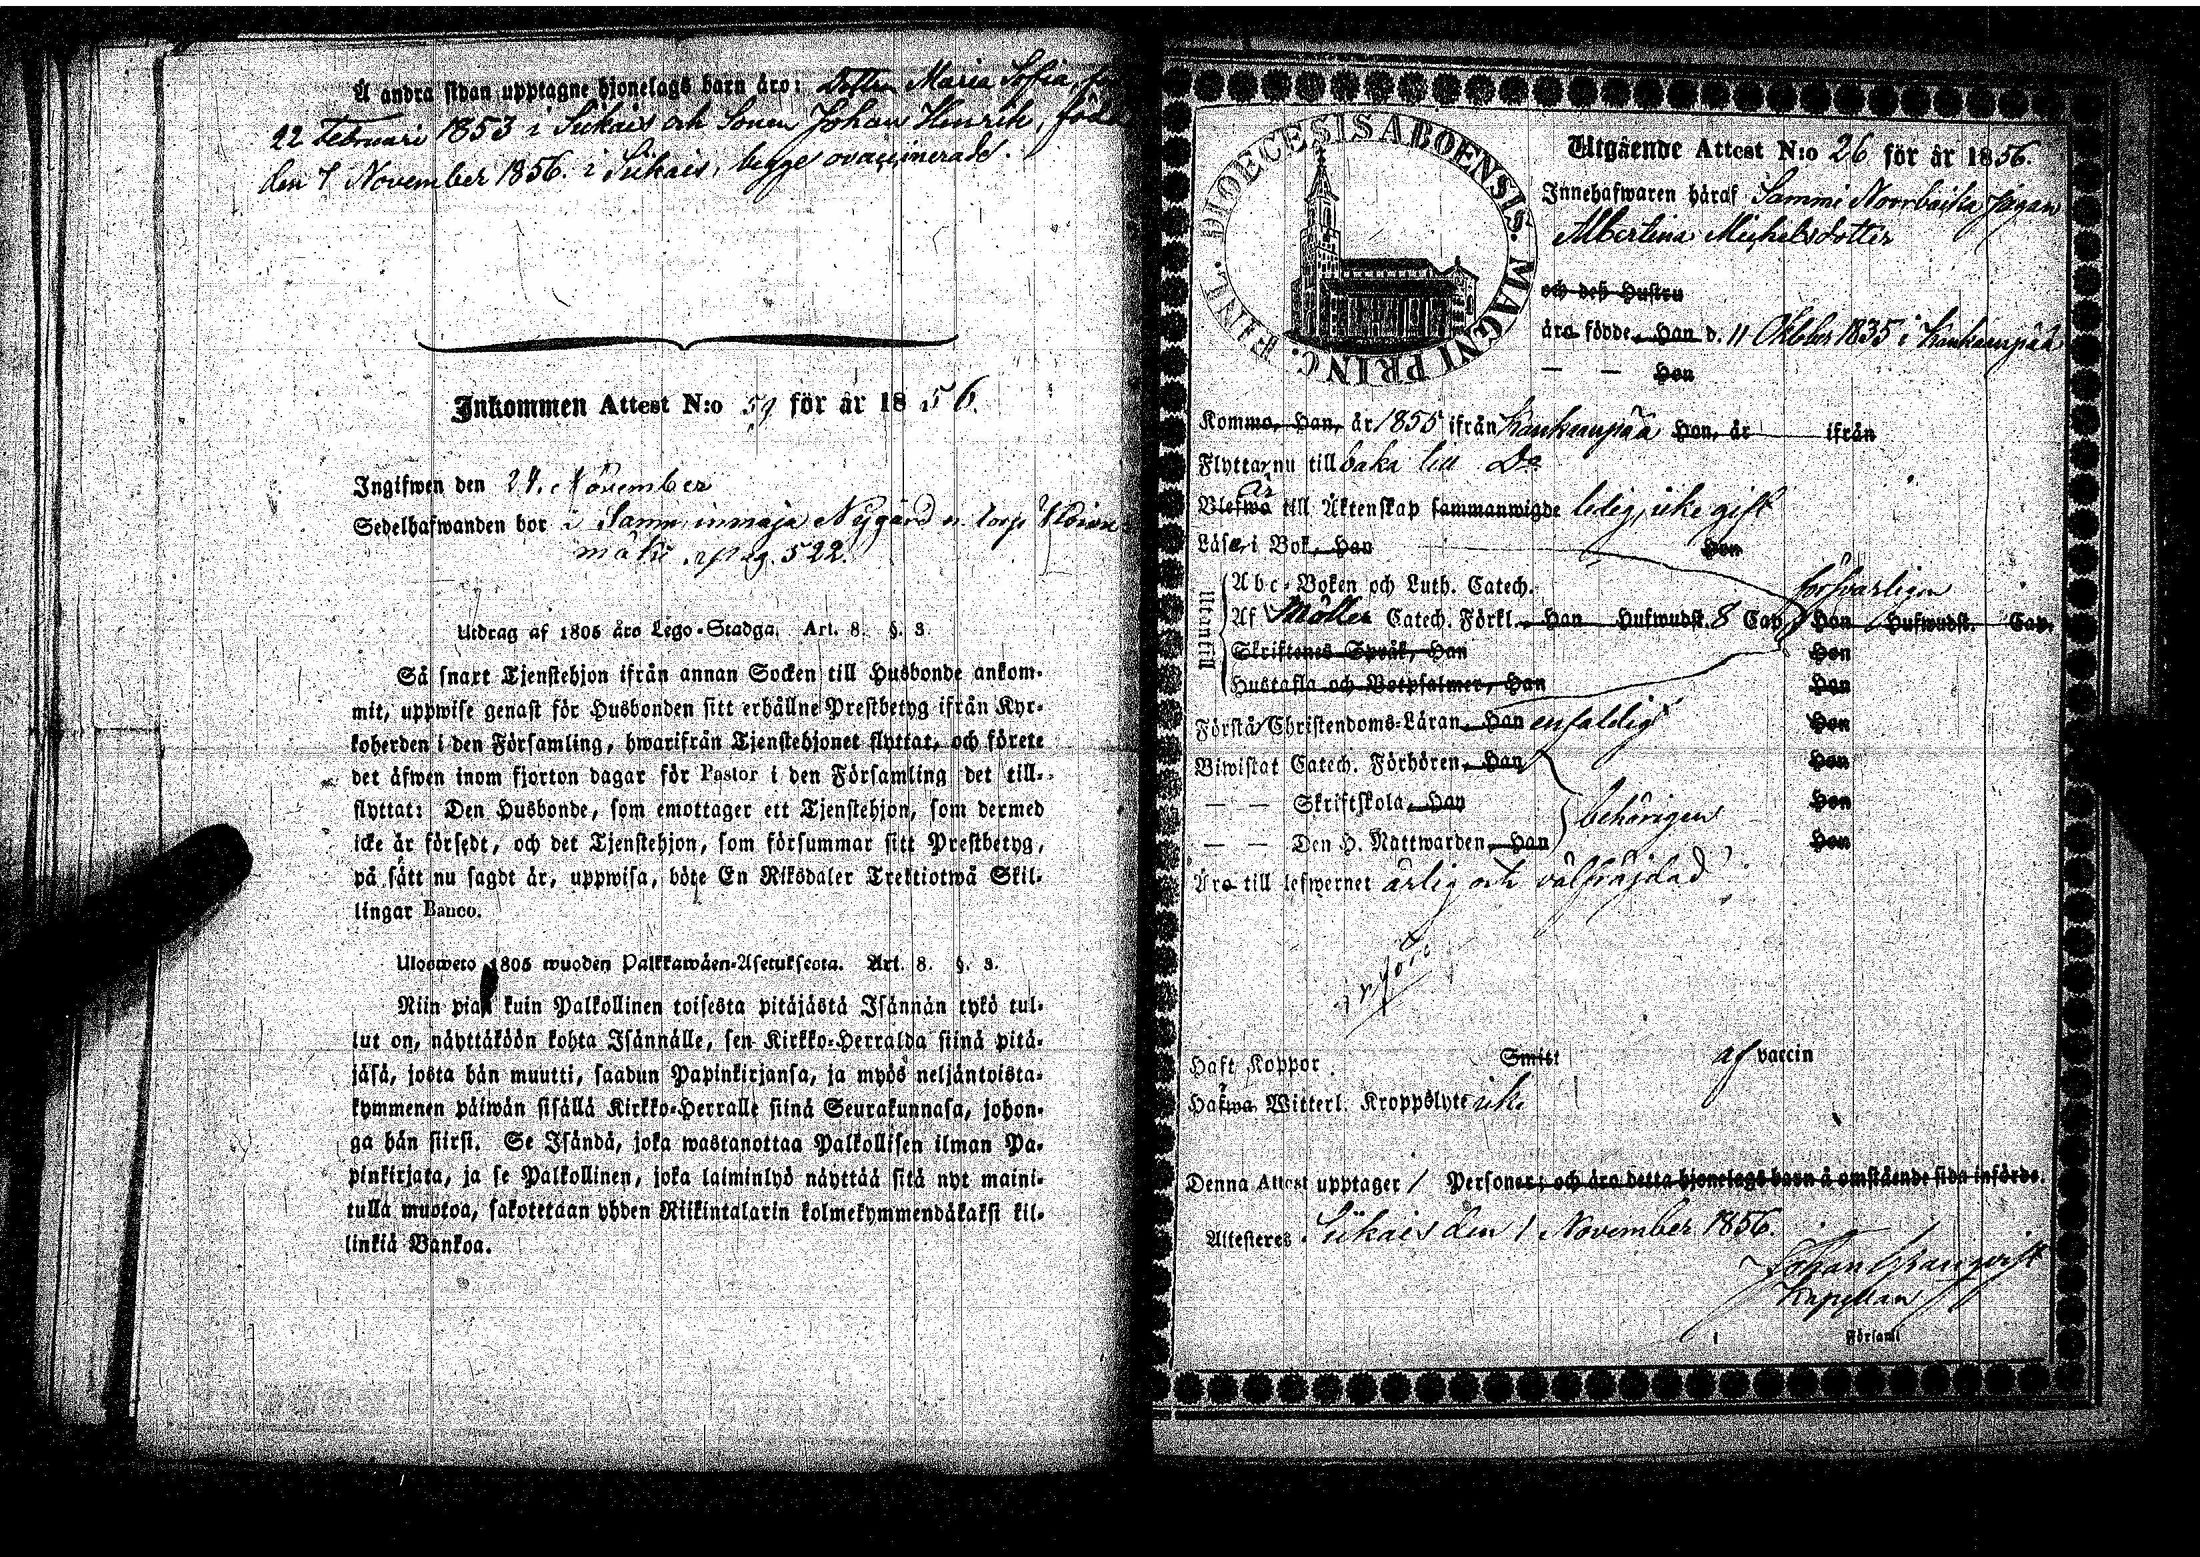 Å andra sidan upptagne hjonelags barn äro: Dottren Maria Sofia, fö
22 Februari 1853 i Siikais och Sonen Johan Henrik, född
den 7 November 1856. i Siikais, begge ovaccinerade.
Inkommen Attest N:o 59 för år 1856.
Ingifwen den 24. November
Sedelhafwanden bor i Samminmaja Nygård n. torp
mäki. pag. 522.
Utdrag af 1805 års Lego-Stadga. Art. 8. §. 3.
Så snart Tjenstehjon ifrån annan Socken till Husbonde ankom-
mit, uppwise genast för Husbonden sitt erhållne Prestbetyg ifrån Kyr-
koherden i den Församling, hwarifrån Tjenstehjonet flyttat, och förete
det äfwen inom fjorton dagar för Pastor i den Församling det till-
flyttat: Den Husbonde, som emottager ett Tjenstehjon, som dermed
icke är försedt, och det Tjenstehjon, som försummar sitt Prestbetyg,
på sätt nu sagdt är, uppwisa, böte En Riksdaler Trettiotwå Skil-
lingar Banco.
Ulosweto 1805 wuoden Palkkawäen-Asetuksesta. Art. 8. §. 3.
Niin pian kuin Palkollinen toisesta pitäjästä Isännän tykö tul-
lut on, näyttäköön kohta Isännälle, sen Kirkko-Herralda siinä pitä-
jäsä, josta hän muutti, saadun Papinkirjansa, ja myös neljäntoista-
kymmenen päiwän sisällä Kirkko-Herralle siinä Seurakunnasa, johon-
ga hän siirsi. Se Isändä, joka wastanottaa Palkollisen ilman Pa-
pinkirjata, ja se Palkollinen, joka laiminlyö näyttää sitä nyt maini-
tulla muotoa, sakotetaan yhden Riikintalarin kolmekymmendäkaksi kil-
linkiä Bankoa.
DIOECESIS ABOENSIS. MAGNI PRINC. FINL.
Utgående Attest N:o 26 för år 1856.
Innehafwaren häraf Sammi Norrbacka pigan
Albertina Michelsdotter
och deß Hustru
äro födde, Han d. 11 Oktober 1835 i Kankaanpää
— — Hon
Kommo, Han, år 1855 ifrån Kankaanpää Hon, år ifrån
Flyttar nu tillbaka till Do
är
Blefwo till Äktenskap sammanwigde ledig, icke gift
Läser i Bok, Han Hon
Utantill
Abc-Boken och Luth. Catech. försvarligen
Af Möller Catech. Förkl. Han Hufwudst. 8 Cap. Hon Hufwudst. Cap.
Skriftenes Språk, Han Hon
Hustafla och Botpsalmer, Han Hon
Förstå Christendoms-Läran, Han enfaldigt Hon
Biwistat Catech. Förhören, Han Hon
— — Skriftskola, Han behörigen Hon
— — Den H. Nattwarden, Han Hon
Äro till lefwernet ärlig och välfräjdad
Haft Koppor Smitt af vaccin
Hafwa Witterl. Kroppslyte icke
Denna Attest upptager 1 Personer; och äro detta hjonelags barn å omstående sida införde.
Attesteres Siikais den 1 November 1856.
Johan Granqvist
Kapellan
i Församl